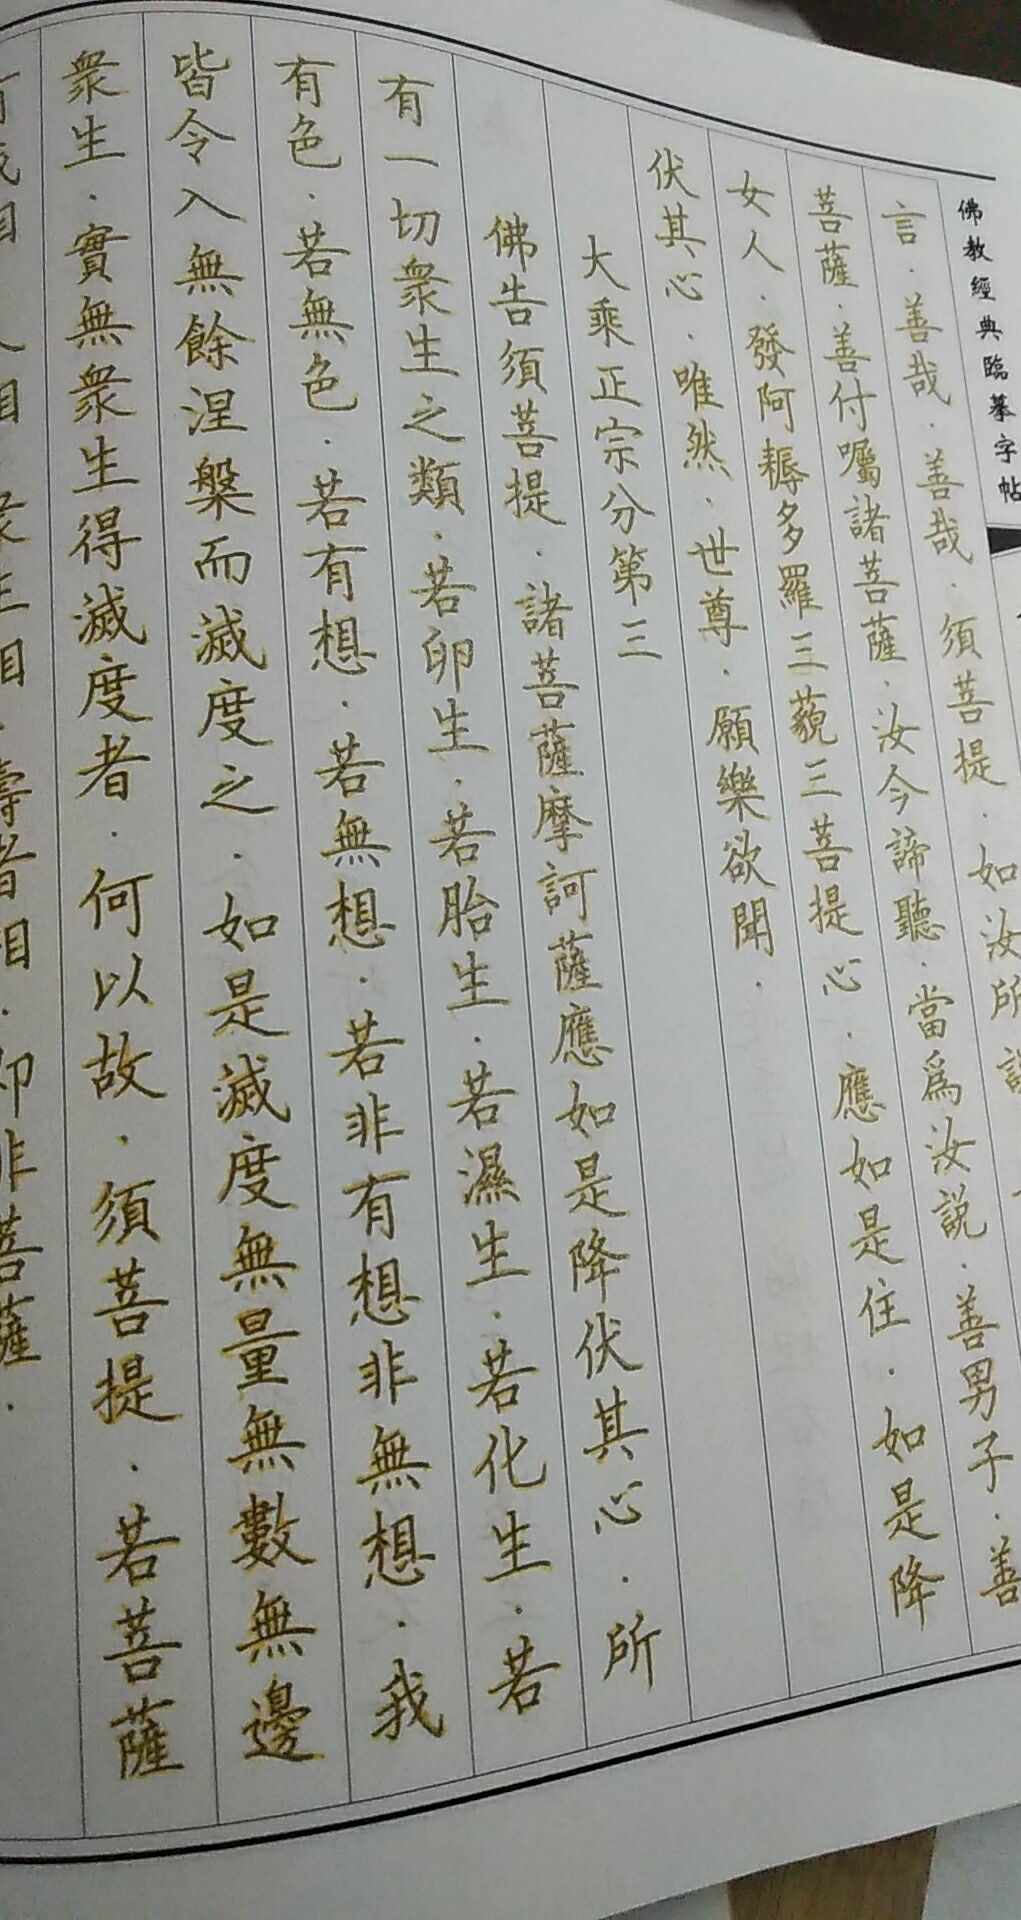 佛教經典臨摹字帖
言．善哉．善哉．須菩提．如汝所說．
菩薩．善付囑諸菩薩．汝今諦聽．當爲汝說．善男子．善
女人．發阿耨多羅三藐三菩提心．應如是住．如是降
伏其心．唯然．世尊．願樂欲聞．
大乘正宗分第三
佛告須菩提．諸菩薩摩訶薩應如是降伏其心．所
有一切衆生之類．若卵生．若胎生．若濕生．若化生．若
有色．若無色．若有想．若無想．若非有想非無想．我
皆令入無餘涅槃而滅度之．如是滅度無量無數無邊
衆生．實無衆生得滅度者．何以故．須菩提．若菩薩
相．衆生相．壽者相．卽非菩薩．